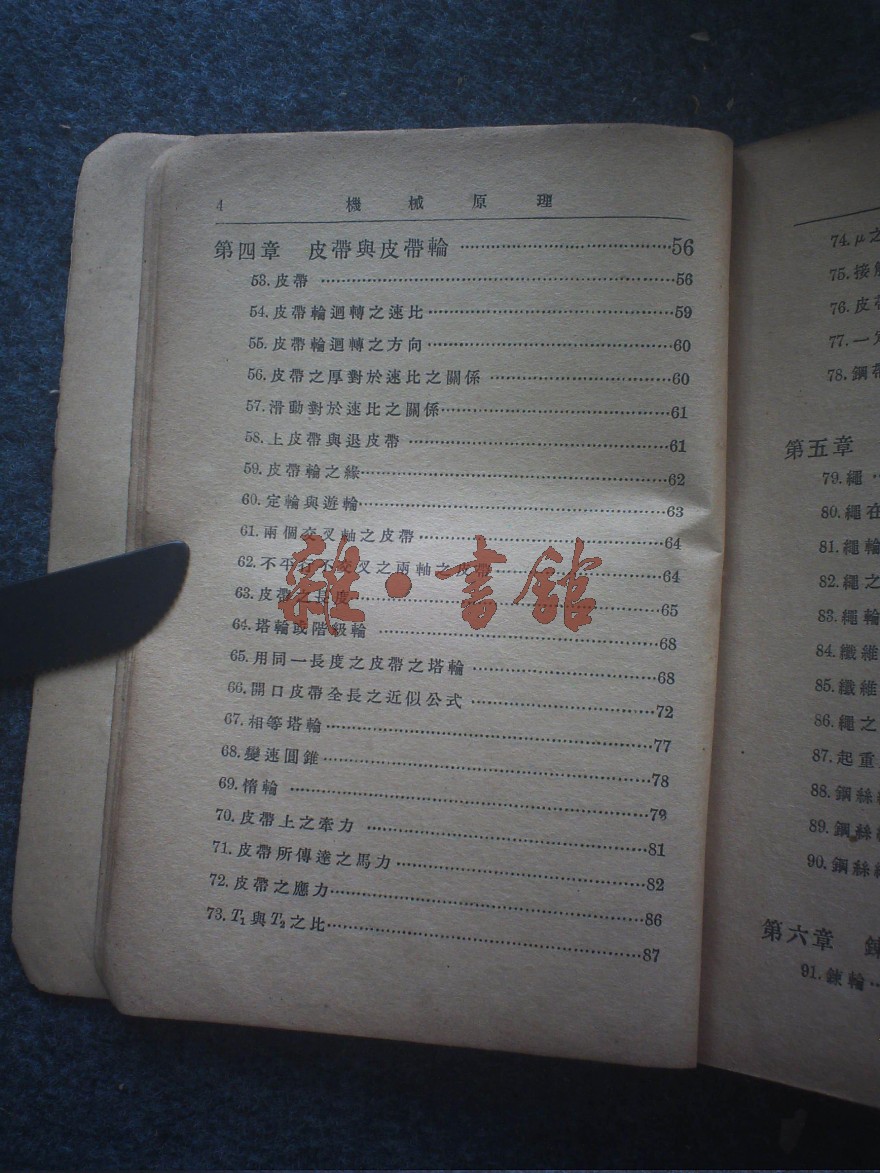 4 機械原理
第四章 皮帶與皮帶輪 ……56
53.皮帶 ……56
54.皮帶輪迴轉之速比……59
55.皮帶輪迴轉之方向……60
56.皮帶之厚對於速比之關係……60
57.滑動對於速比之關係……61
58.上皮帶與退皮帶……61
59.皮帶輪之緣……62
60.定輪與遊輪……63
61.兩個交叉軸之皮帶……64
62.不平行不交叉之兩軸之皮帶……64
63.皮帶之長度……65
64.塔輪或階級輪……68
65.用同一長度之皮帶之塔輪……68
66.開口皮帶全長之近似公式……72
67.相等塔輪……77
68.變速圓錐……78
69.惰輪……79
70.皮帶上之牽力……81
71.皮帶所傳達之馬力……82
72.皮帶之應力……86
73.T₁與T₂之比……87
雜·書館
74.μ之
75.接觸
76.皮帶
77.一定
78.鋼帶
第五章
79.繩…
80.繩在
81.繩輪
82.繩之
83.繩輪
84.纖維
85.纖維
86.繩之
87.起重
88.鋼絲
89.鋼絲
90.鋼絲
第六章 鍊
91.鍊輪…